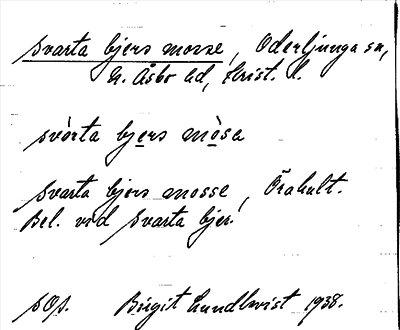 Svarta bjers mosse, Oderljunga sn,
N. Åsbo hd, Krist. l.
svàrta bjers mòsa
Svarta bjers mosse, Örahult.
Bel. vid Svarta bjer.
sOp. Birgit Lundkvist 1938.